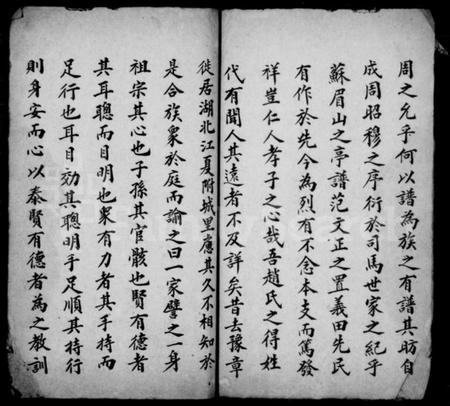 周之允乎何以譜為族之有譜其昉自
成周昭穆之序衍於司馬世家之紀乎
蘇眉山之亭譜范文正之置義田先氏
有作於先今為烈有不念本支而篤發
祥豈仁人孝子之心哉吾趙氏之得姓
代有聞人其遠者不及詳矣昔去豫章
徙居湖北江夏附城里應其久不相知於
是合族眾於庭而諭之曰一家譬之一身
祖宗其心也子孫其官骸也賢有德者
其耳聰而目明也眾有力者其手持而
足行也耳目効其聰明手足順其持行
則身安而心以泰賢有德者為之教訓